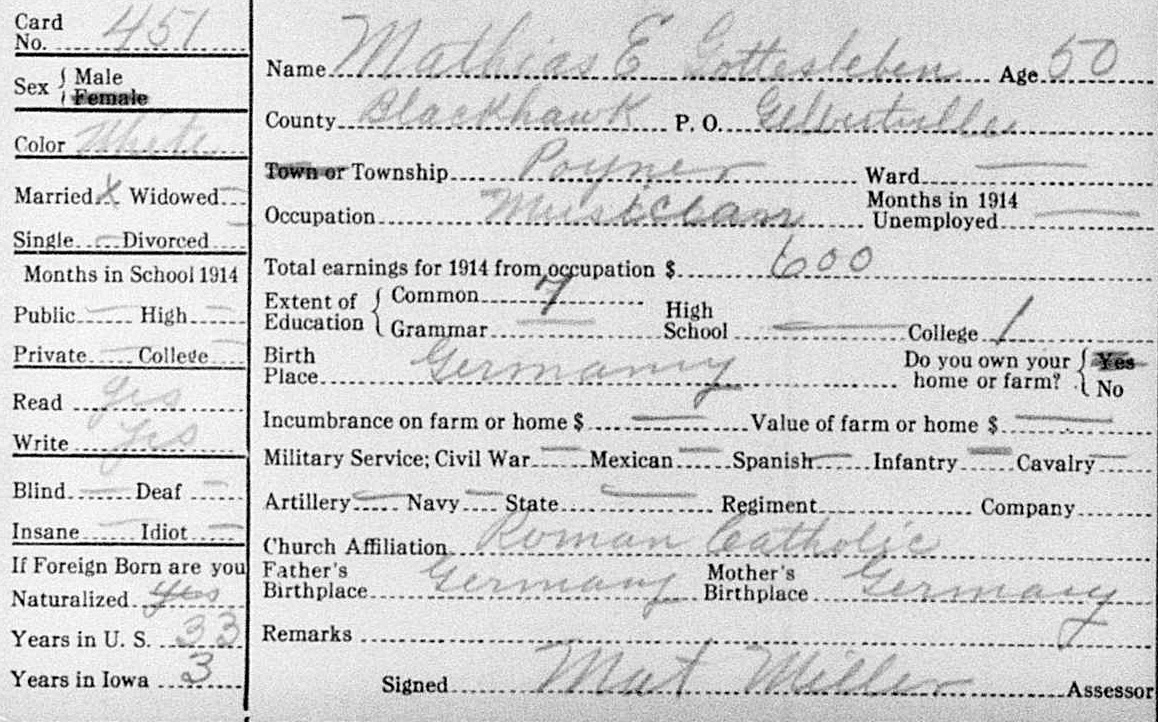 Card No. 451
Sex { Male
Female
Color White
Married X Widowed –
Single – Divorced –
Months in School 1914
Public – High –
Private – College –
Read yes
Write yes
Blind – Deaf –
Insane – Idiot –
If Foreign Born are you
Naturalized yes
Years in U. S. 33
Years in Iowa 3
Name Mathias E Gottesleben Age 50
County Blackhawk P. O. Gilbertville
Town or Township Poyner Ward –
Occupation Musician Months in 1914 Unemployed –
Total earnings for 1914 from occupation $ 600
Extent of Education { Common 7
Grammar – High School – College 1
Birth Place Germany Do you own your home or farm? { Yes
No
Incumbrance on farm or home $ – Value of farm or home $ –
Military Service; Civil War – Mexican – Spanish – Infantry – Cavalry –
Artillery – Navy – State – Regiment Company
Church Affiliation Roman Catholic
Father's Birthplace Germany Mother's Birthplace Germany
Remarks
Signed Mat Miller Assessor